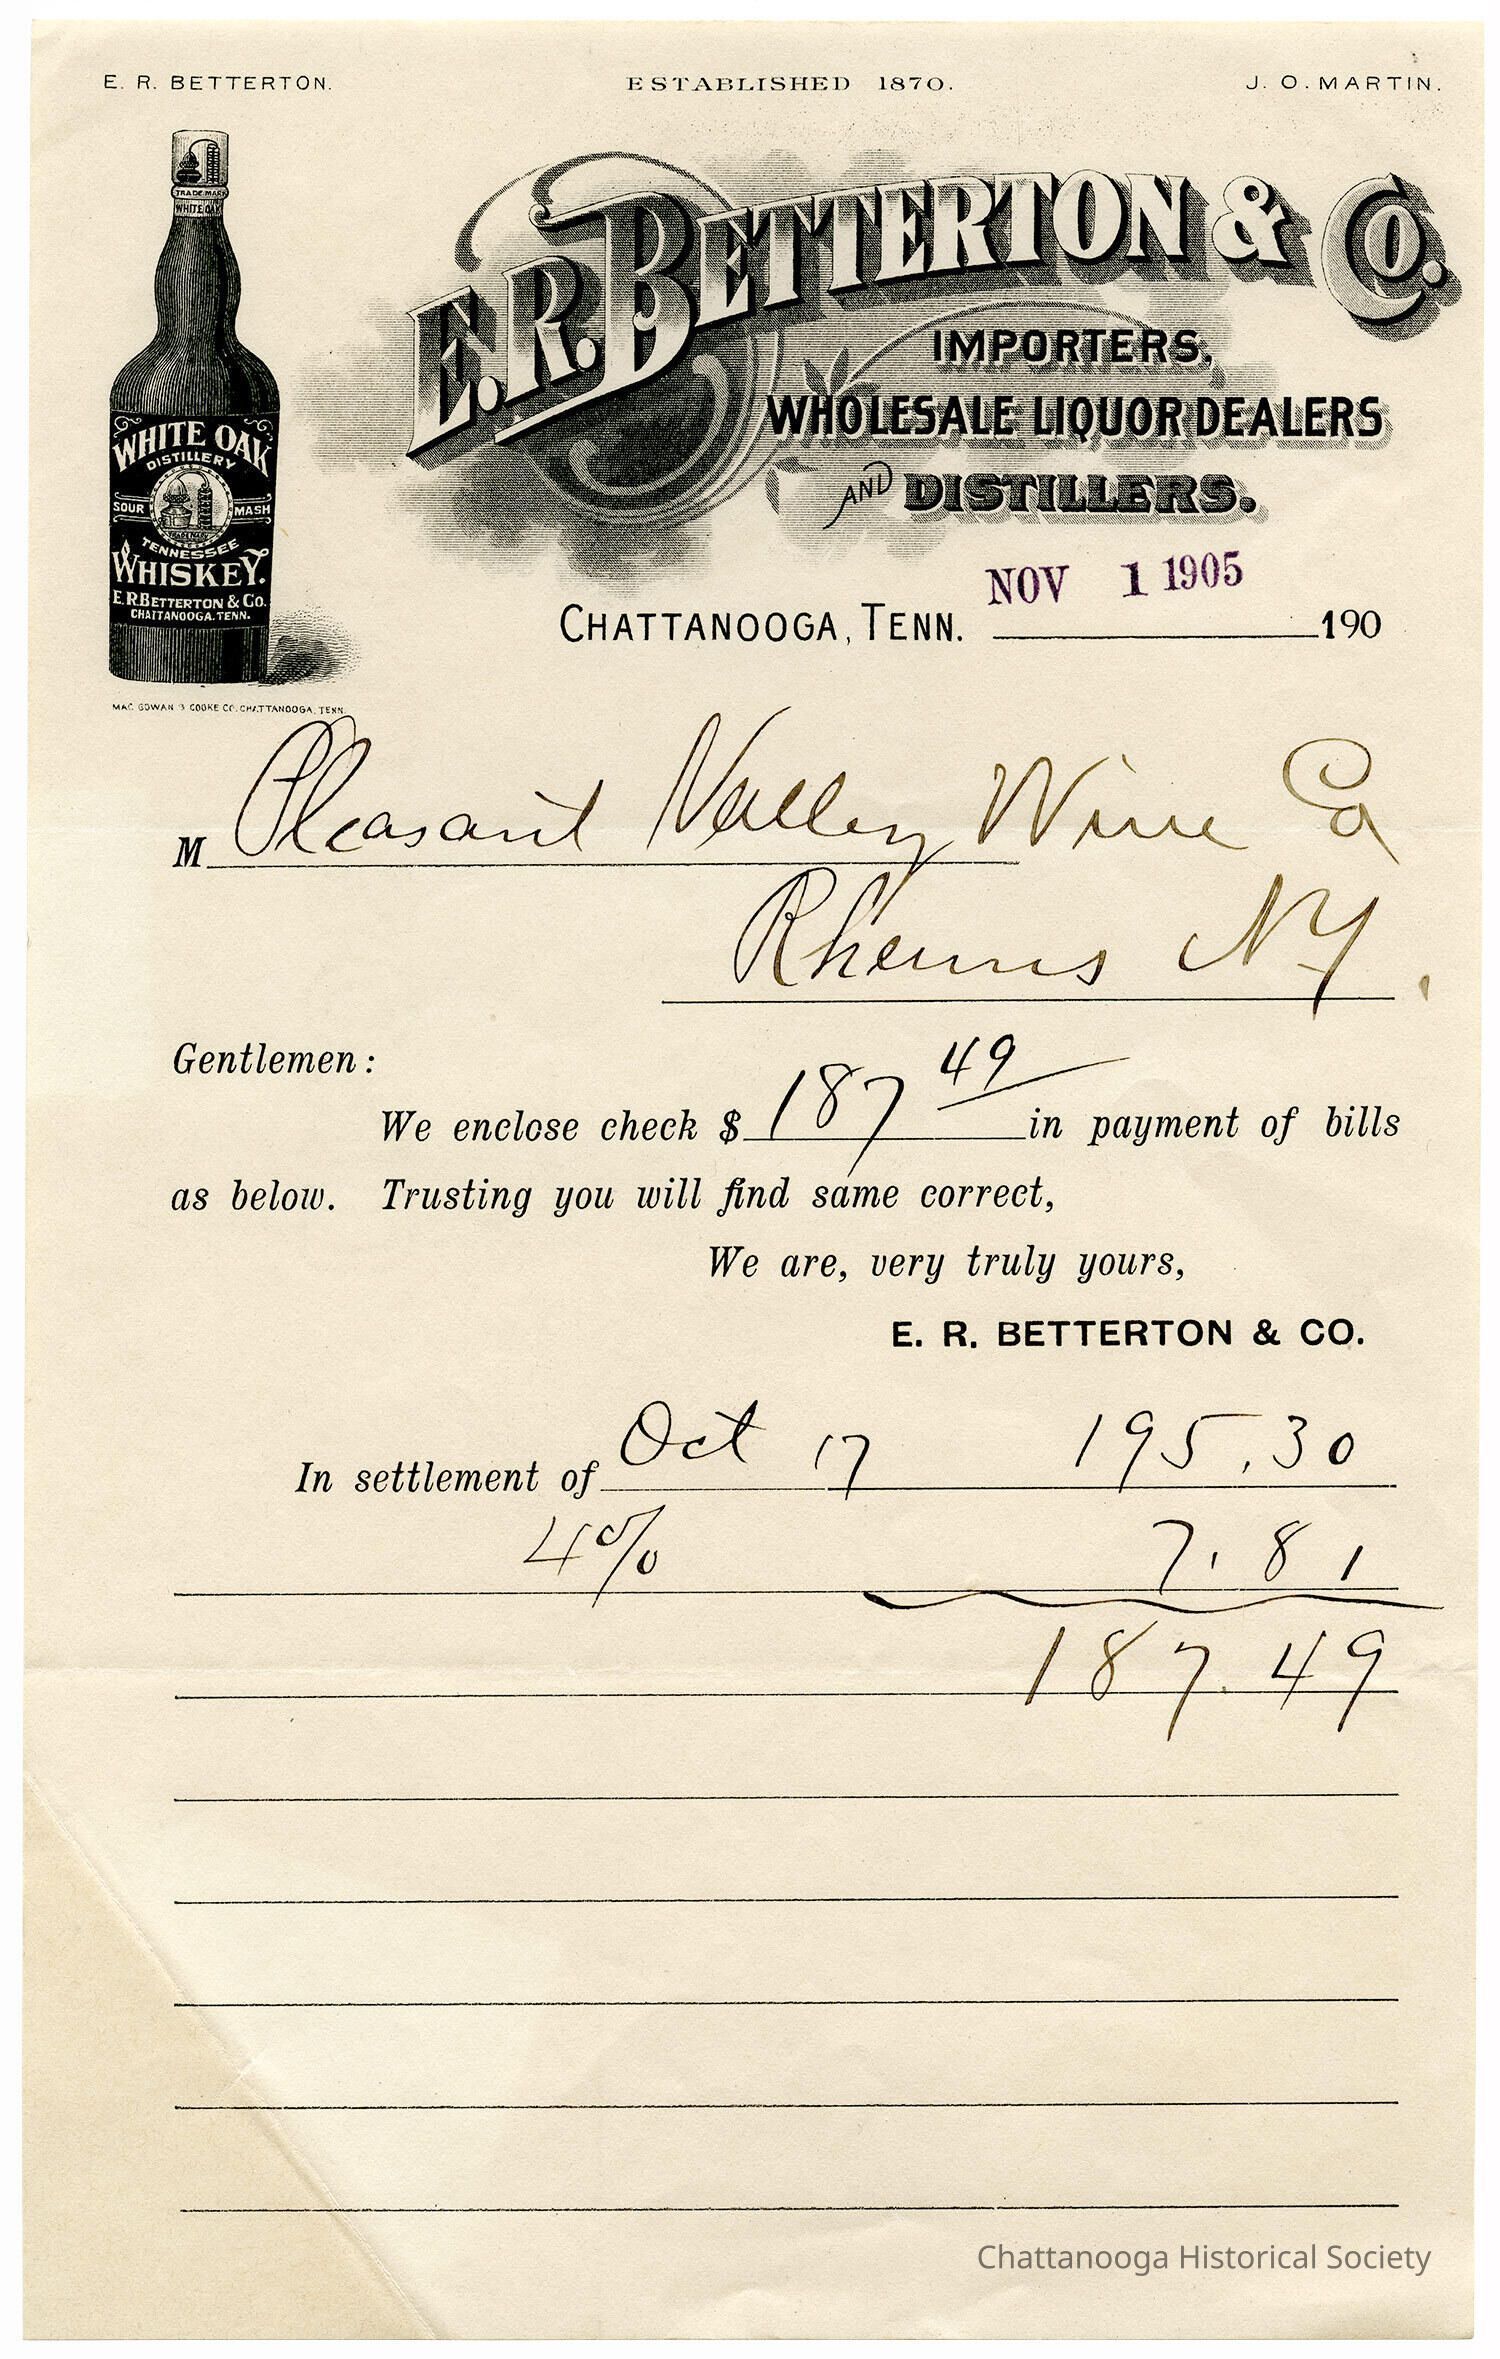 E. R. BETTERTON. ESTABLISHED 1870. J. O. MARTIN.
TRADE MARK
WHITE OAK
E. R. BETTERTON & CO.
IMPORTERS,
WHOLESALE LIQUOR DEALERS
AND DISTILLERS.
WHITE OAK
DISTILLERY
SOUR MASH
TENNESSEE
WHISKEY.
E. R. BETTERTON & CO.
CHATTANOOGA, TENN.
NOV 1 1905
CHATTANOOGA, TENN. 190
MAC GOWAN & COOKE CO. CHATTANOOGA, TENN.
M Pleasant Valley Wine Co
Rheims NY.
Gentlemen:
We enclose check $ 187 49 in payment of bills
as below. Trusting you will find same correct,
We are, very truly yours,
E. R. BETTERTON & CO.
In settlement of Oct 17 195.30
4% 7.81
187.49
Chattanooga Historical Society